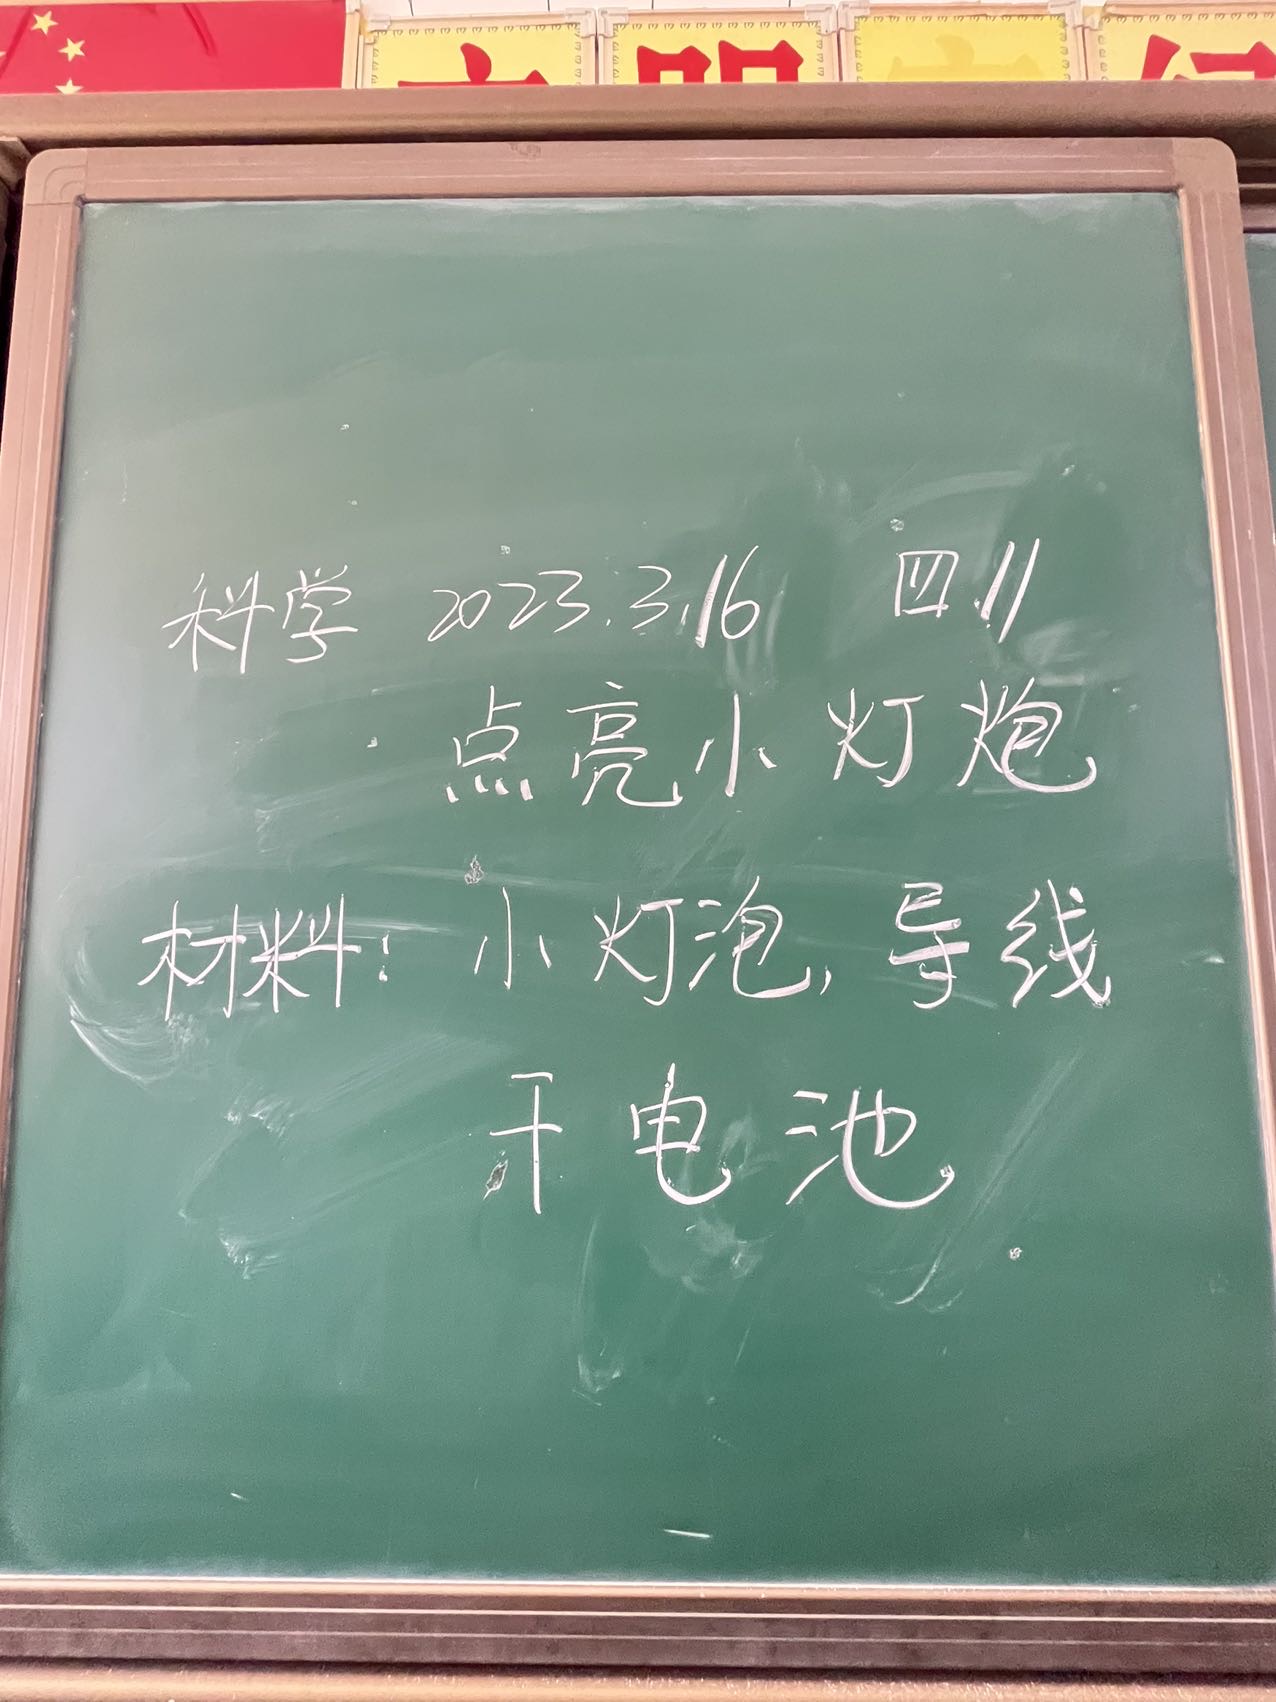 科学 2023.3.16 四.11
点亮小灯炮
材料：小灯泡，导线
干电池